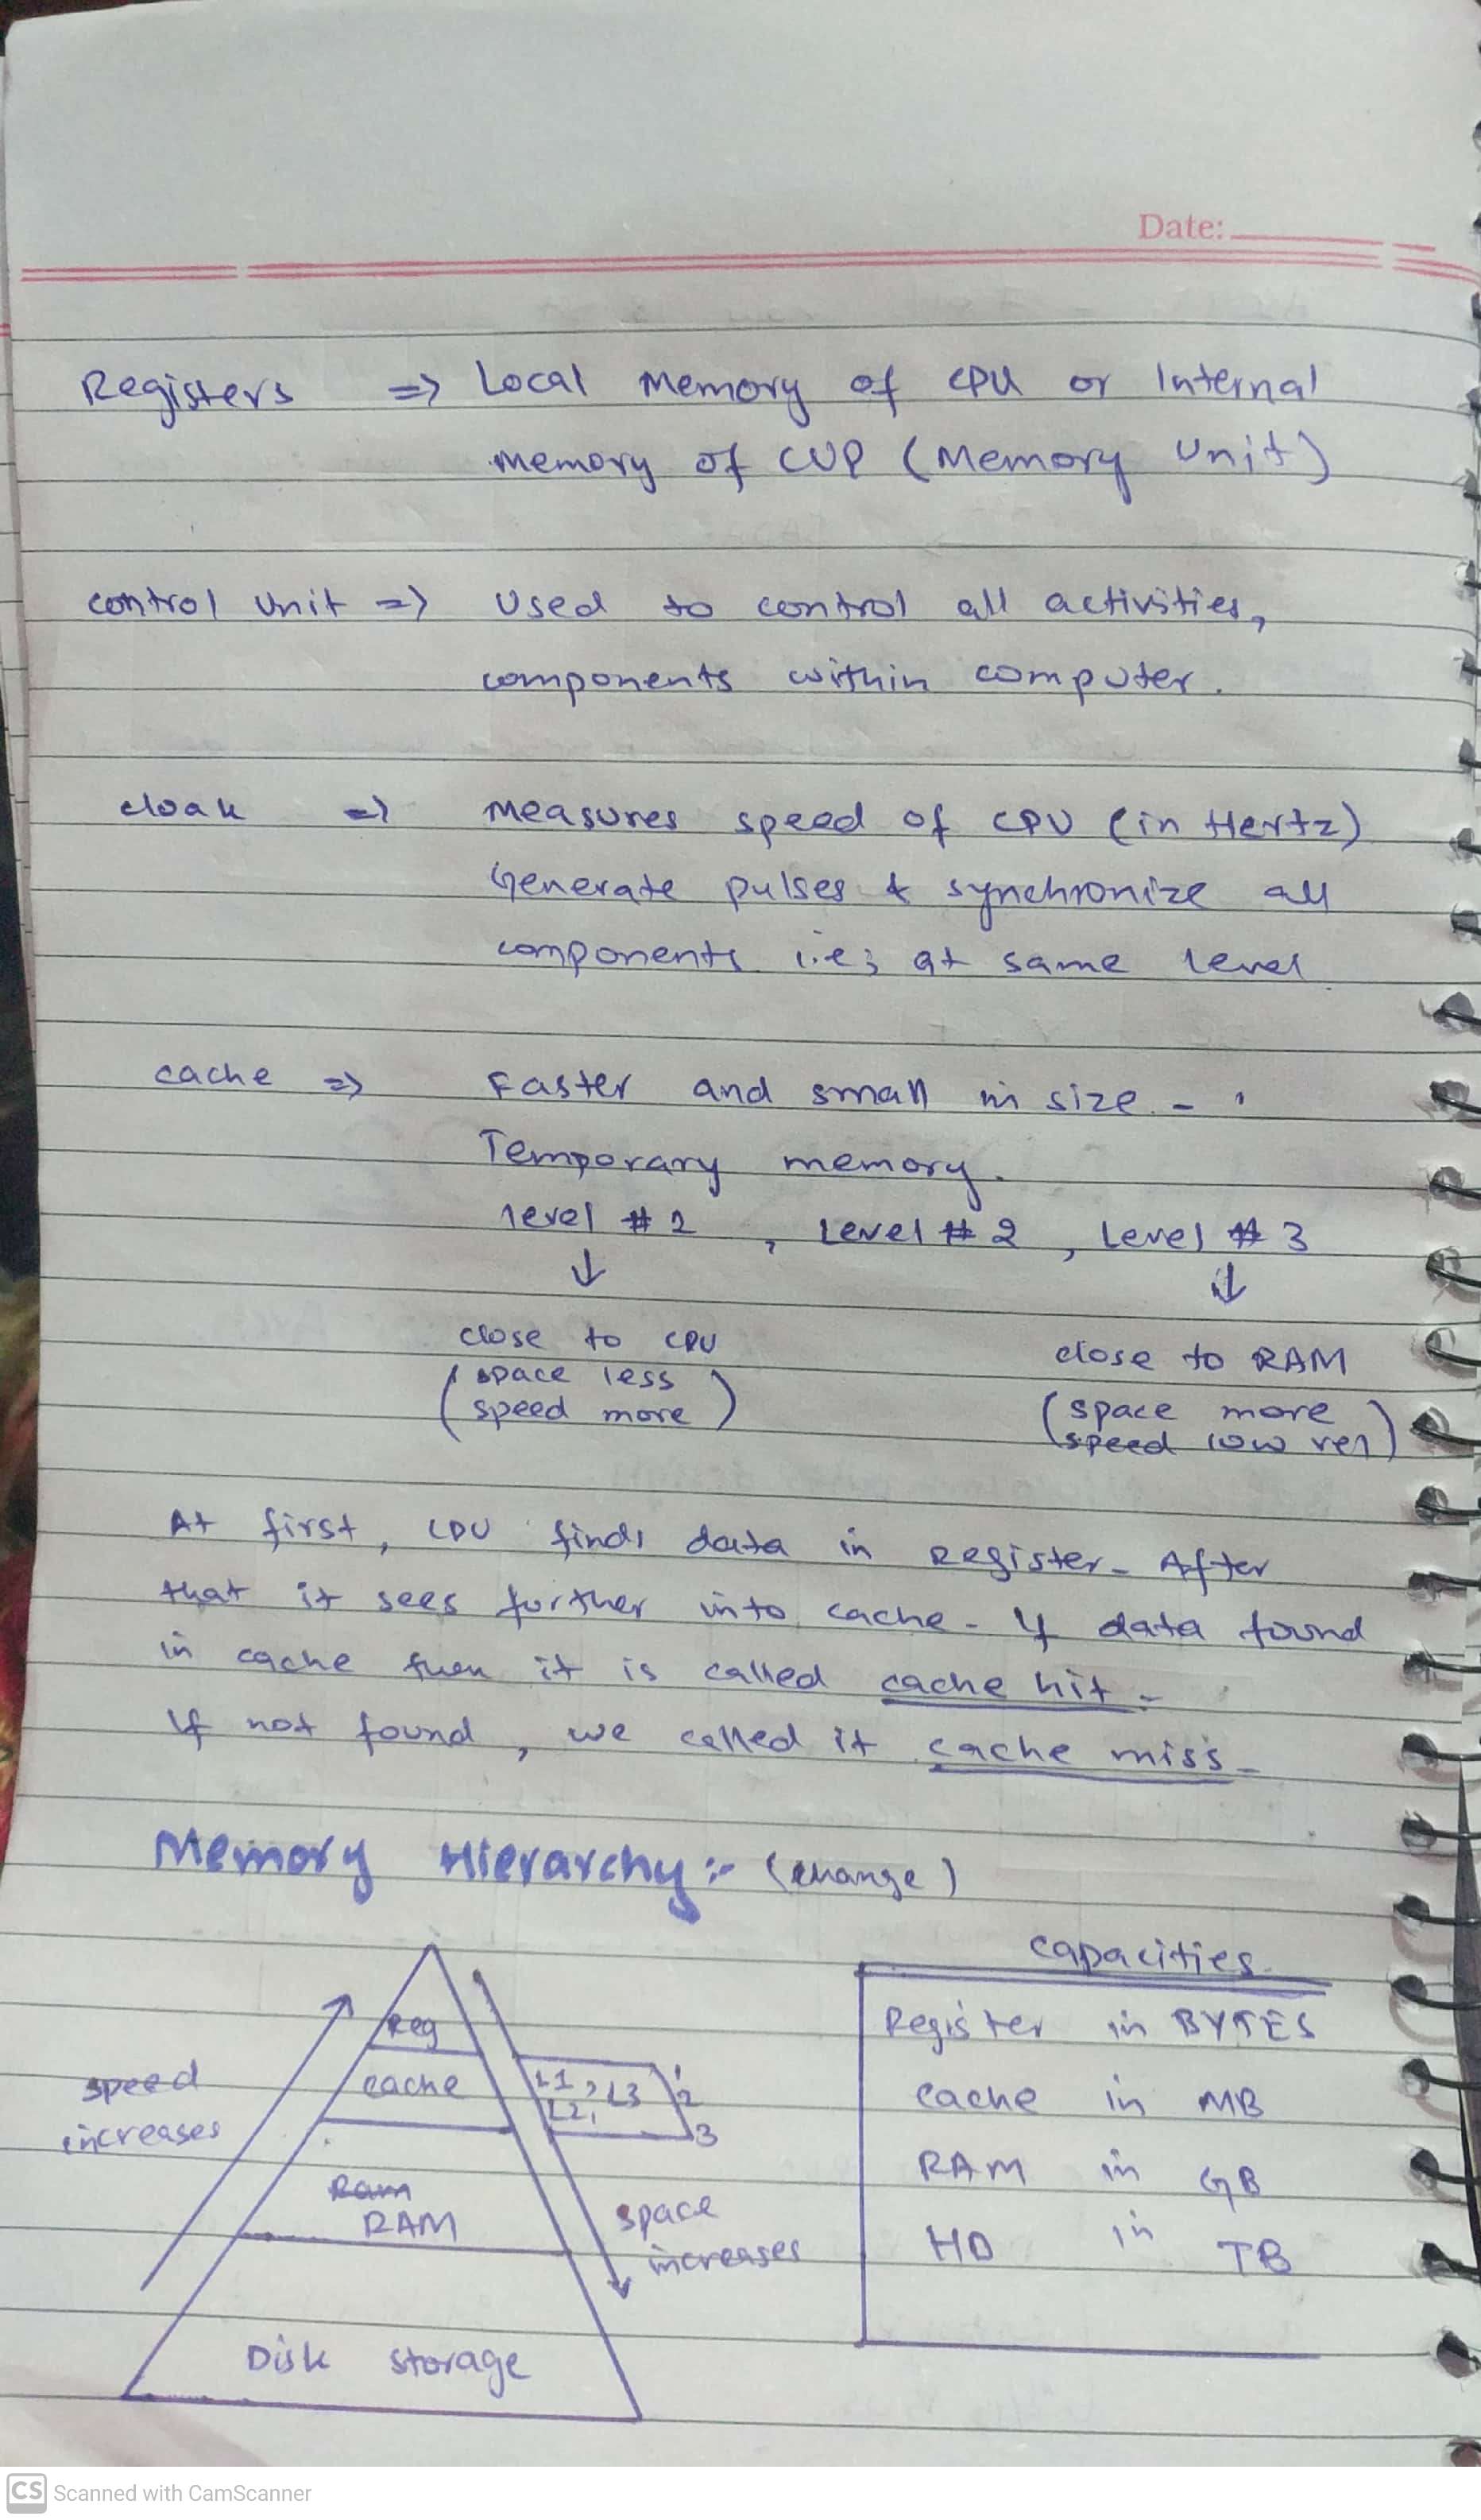 Date:
Registers => Local Memory of CPU or Internal
memory of CUP (Memory Unit)
control Unit => Used to control all activities,
components within computer.
cloak => measures speed of CPU (in Hertz)
Generate pulses & synchronize all
components i.e; at same level
cache => Faster and small in size.
Temporary memory.
level # 1 , Level # 2 , Level # 3
↓ ↓
close to CPU close to RAM
(space less (space more
speed more) speed low ver)
At first, CPU finds data in Register. After
that it sees further into cache. If data found
in cache then it is called cache hit.
If not found, we called it cache miss.
Memory Hierarchy:- (change)
capacities
Reg Register in BYTES
speed cache L1, L3 1 2 cache in MB
increases L2, 3
Ram RAM in GB
RAM space HD in TB
increases
Disk storage
CS Scanned with CamScanner